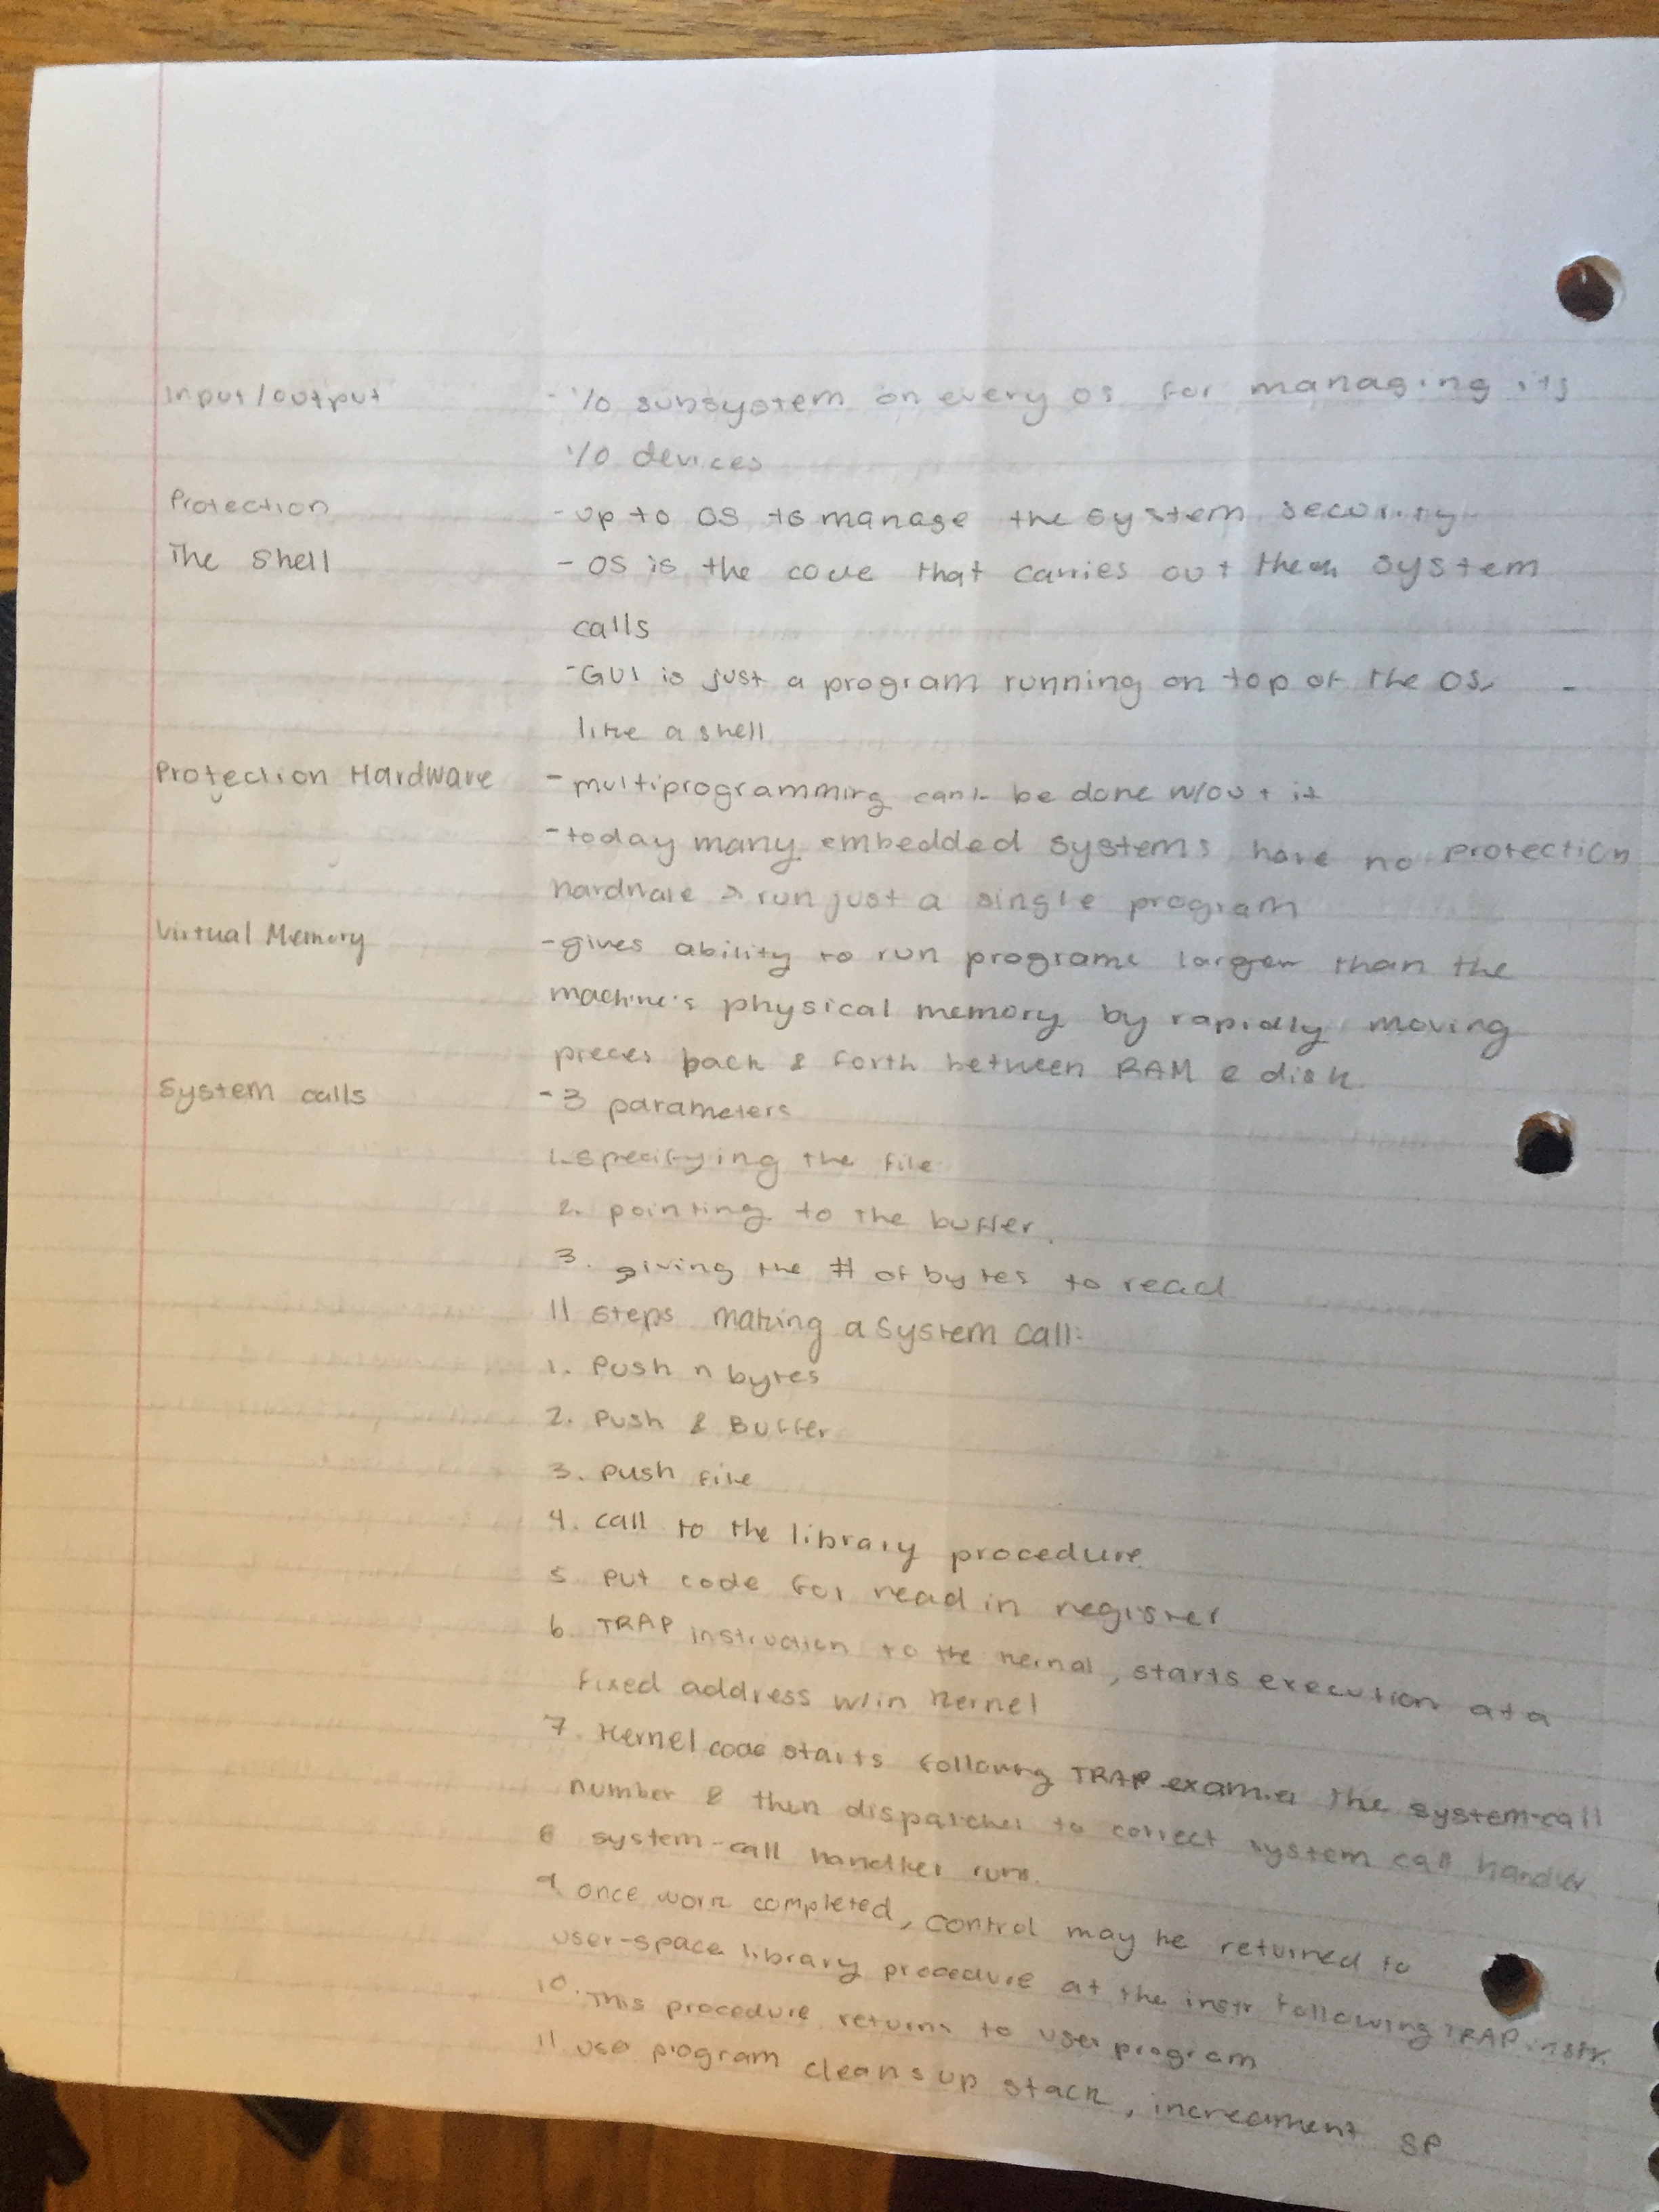 Input/output - I/O subsystem on every OS for managing its
I/O devices
Protection - up to OS to manage the system security
The Shell - OS is the code that carries out the system
calls
- GUI is just a program running on top of the OS
like a shell
Protection Hardware - multiprogramming cant be done w/out it
- today many embedded systems have no protection
hardware & run just a single program
Virtual Memory - gives ability to run programs larger than the
machine's physical memory by rapidly moving
pieces back & forth between RAM & disk
System calls - 3 parameters
1. specifying the file
2. pointing to the buffer.
3. giving the # of bytes to read
11 steps making a system call:
1. Push n bytes
2. Push & Buffer
3. push file
4. call to the library procedure
5 put code for read in register
6. TRAP instruction to the kernal, starts execution at a
fixed address w/in kernel
7. Kernel code starts following TRAP the system-call
number & then dispatches to correct system call handler
8 system-call handler runs.
9 once work completed, control may be returned to
user-space library procedure at the instr following TRAP instr.
10. This procedure returns to user program
11 program cleans up stack, increament SP